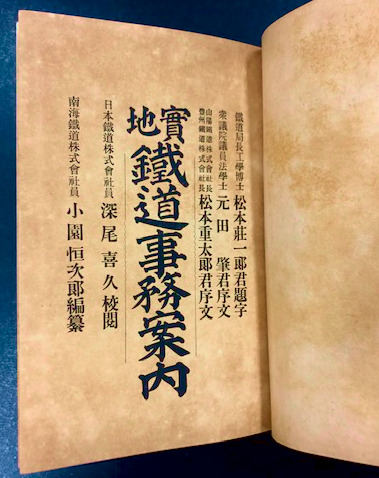 鐵道局長工學博士 松本莊一郎君題字
衆議院議員法學士 元田肇君序文
山陽鐵道株式會社長
豊州鐵道株式會社長 松本重太郎君序文
實地 鐵道事務案内
日本鐵道株式會社員 深尾喜久校閲
南海鐵道株式會社員 小園恒次郎編纂